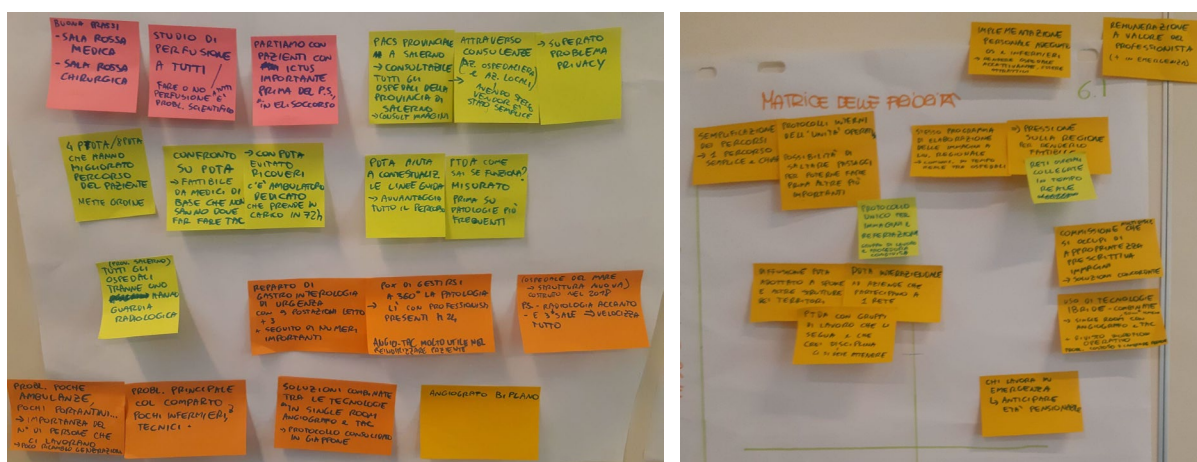 BUONA PRASSI
- SALA ROSSA
MEDICA
- SALA ROSSA
CHIRURGICA
STUDIO DI
PERFUSIONE
A TUTTI
FARE O NO
PERFUSIONE È
PROBL. SCIENTIFICO
PARTIAMO CON
PAZIENTI CON
ICTUS
IMPORTANTE
PRIMA DEL P.S.,
IN ELISOCCORSO
PACS PROVINCIALE
A SALERNO
→ CONSULTABILE
TUTTI GLI
OSPEDALI DELLA
PROVINCIA DI
SALERNO
→ CONSULT IMMAGINI
ATTRAVERSO
CONSULENZE
AZ. OSPEDALIERA
E AZ. LOCALI
AVENDO STESSO
VENDOR È
STATO SEMPLICE
→ SUPERATO
PROBLEMA
PRIVACY
4 PDTA/
CHE HANNO
MIGLIORATO
PERCORSO
DEL PAZIENTE
METTE ORDINE
CONFRONTO
SU PDTA
→ FATTIBILE
DA MEDICI DI
BASE CHE NON
SANNO DOVE
FAR FARE TAC
→ CON PDTA
EVITATO
RICOVERI
C'È AMBULATORIO
DEDICATO
CHE PRENDE IN
CARICO IN 72h
PDTA AIUTA
A CONTESTUALIZ.
LE LINEE GUIDA
→ AVVANTAGGIA
TUTTO IL PERCORSO
PTDA COME
SAI SE FUNZIONA?
MISURATO
PRIMA SU
PATOLOGIE PIÙ
FREQUENTI
(PROV. SALERNO)
TUTTI GLI
OSPEDALI
TRANNE UNO
HANNO
GUARDIA
RADIOLOGICA
REPARTO DI
GASTROINTEROLOGIA
DI URGENZA
CON 9 POSTAZIONI LETTO
+ 3
SEGUITO DI NUMERI
IMPORTANTI
POX DI GESTIRSI
A 360° LA PATOLOGIA
→ LÌ CON PROFESSIONISTI
PRESENTI H 24
ANGIO-TAC MOLTO UTILE NEL
PAZIENTE
(OSPEDALE DEL MARE
→ STRUTTURA NUOVA)
COSTRUITO NEL 2018
PS - RADIOLOGIA ACCANTO
- E 3 SALE ⇒ VELOCIZZA
TUTTO
PROBL. POCHE
AMBULANZE,
POCHI PORTANTINI...
→ IMPORTANZA DEL
N° DI PERSONE CHE
CI LAVORANO
→ POCO RICAMBIO GENERAZION.
PROBL. PRINCIPALE
COL COMPARTO
POCHI INFERMIERI,
TECNICI.
SOLUZIONI COMBINATE
TRA LE TECNOLOGIE
"IN SINGLE ROOM
ANGIOGRAFO E TAC
→ PROTOCOLLO CONSOLIDATO
IN GIAPPONE
ANGIOGRAFO BIPLANO
IMPLEMENTAZIONE
PERSONALE ADEGUATO
INFERMIERI
REMUNERAZIONE
A VALORE DEL
PROFESSIONISTA
6.1
MATRICE DELLE PRIORITÀ
SEMPLIFICAZIONE
DEI PERCORSI
→ 1 PERCORSO
SEMPLICE E
PROTOCOLLI INTERNI
DELL'UNITÀ OPERAT.
POSSIBILITÀ DI
SALTARE PASSAGGI
PER POTERNE FARE
PRIMA ALTRI PIÙ
IMPORTANTI
STESSO PROGRAMMA
DI ELABORAZIONE
DELLE IMMAGINI A
LIV. REGIONALE
→ PRESSIONE
SULLA REGIONE
PER RENDERLO
FATTIBILE
RETI
COLLEGATE
IN TEMPO
REALE
PROTOCOLLO
UNICO PER
IMMAGINI E
REFERTAZIONE
COMMISSIONE CHE
SI OCCUPI DI
APPROPRIATEZZA
PRESCRITTIVA
IMMAGINI
→ SOLUZIONI CONCORDATE
DIFFUSIONE PDTA
ADOTTATO A
E ALTRE STRUTTURE
DEI TERRITORI
PDTA INTERAZIENDALE
DI AZIENDE CHE
PARTECIPANO A
1 RETE
PTDA CON GRUPPI
DI LAVORO CHE LI
SEGUA E CHE
OGNI DISCIPLINA
CI SI PUÒ ATTENERE
USO DI TECNOLOGIE
IBRIDE
→ SINGLE ROOM CON
ANGIOGRAFO E TAC
OPERATIVO
CHI LAVORA IN
EMERGENZA
↳ ANTICIPARE
ETÀ PENSIONABILE